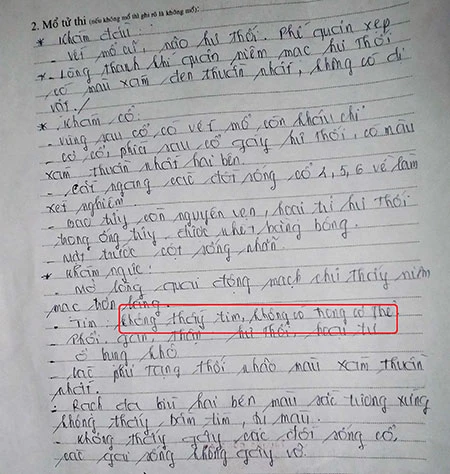 2. Mổ tử thi (nếu không mổ thì ghi rõ là không mổ):
* Khám đầu:
- Vết mổ cũ, não hư thối. Phế quản xẹp
*- Lòng thanh khí quản niêm mạc hư thối
có màu xám đen thuần nhất, không có dị
vật./
* Khám cổ:
- Vùng sau cổ có vết mổ còn khâu chỉ
- cơ cổ, phía sau cổ gáy hư thối, có màu
xám thuần nhất hai bên.
- cắt ngang các đốt sống cổ 4, 5, 6 về làm
xét nghiệm.
- Bao tủy còn nguyên vẹn, hoại tử hư thối
trong ống tủy, dịch
- Mặt trước cột sống nhẵn.
* Khám ngực:
- Mở lòng quai động mạch chủ thấy niêm
mạc hơn
- Tim: không thấy tim, không có trong cơ thể
- Phổi, gan, thận hư thối, hoại tử
- Ổ bụng khô
- các phủ tạng thối nhão màu xám thuần
nhất.
- Rạch da bìu hai bên màu sắc tương xứng
không thấy bầm tím, tụ máu.
- Không thấy gãy các đốt sống cổ,
các gai sống không gãy vỡ.